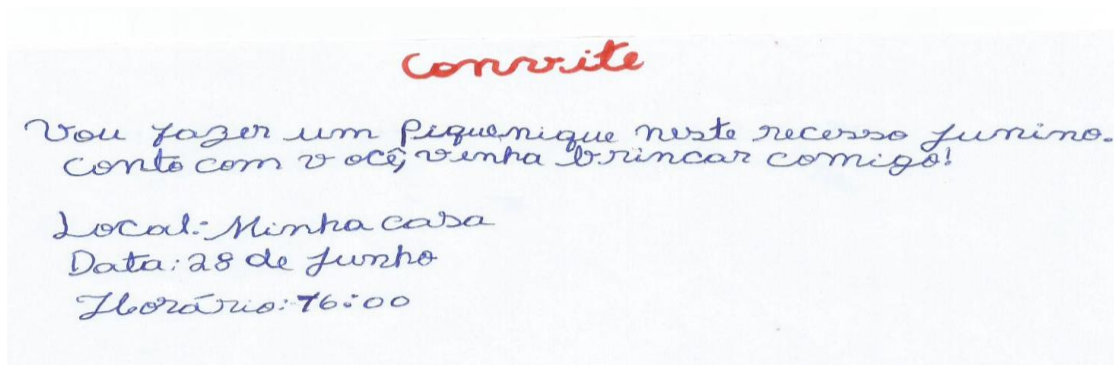 Convite
Vou fazer um Piquenique neste recesso junino.
Conto com você, venha brincar comigo!
Local: Minha casa
Data: 28 de junho
Horário: 16:00